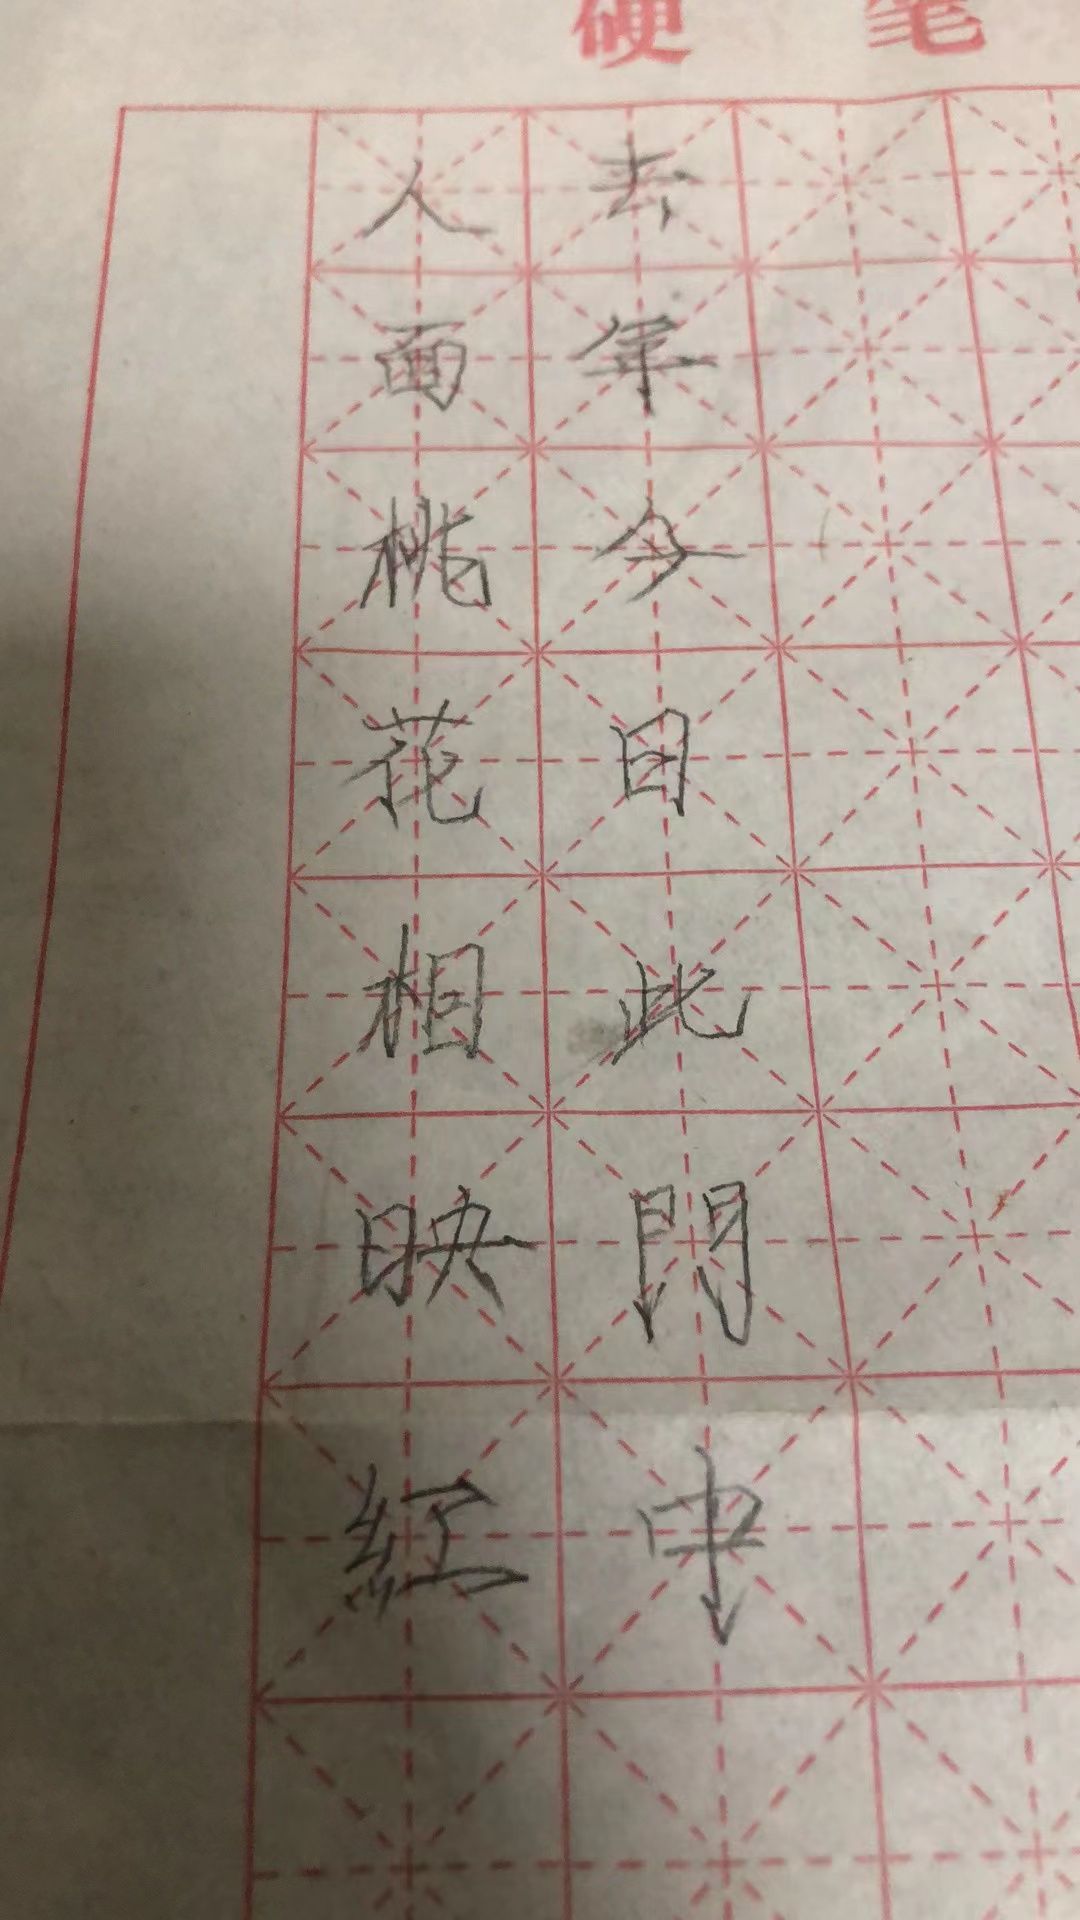 硬笔
去年今日此門中
人面桃花相映紅